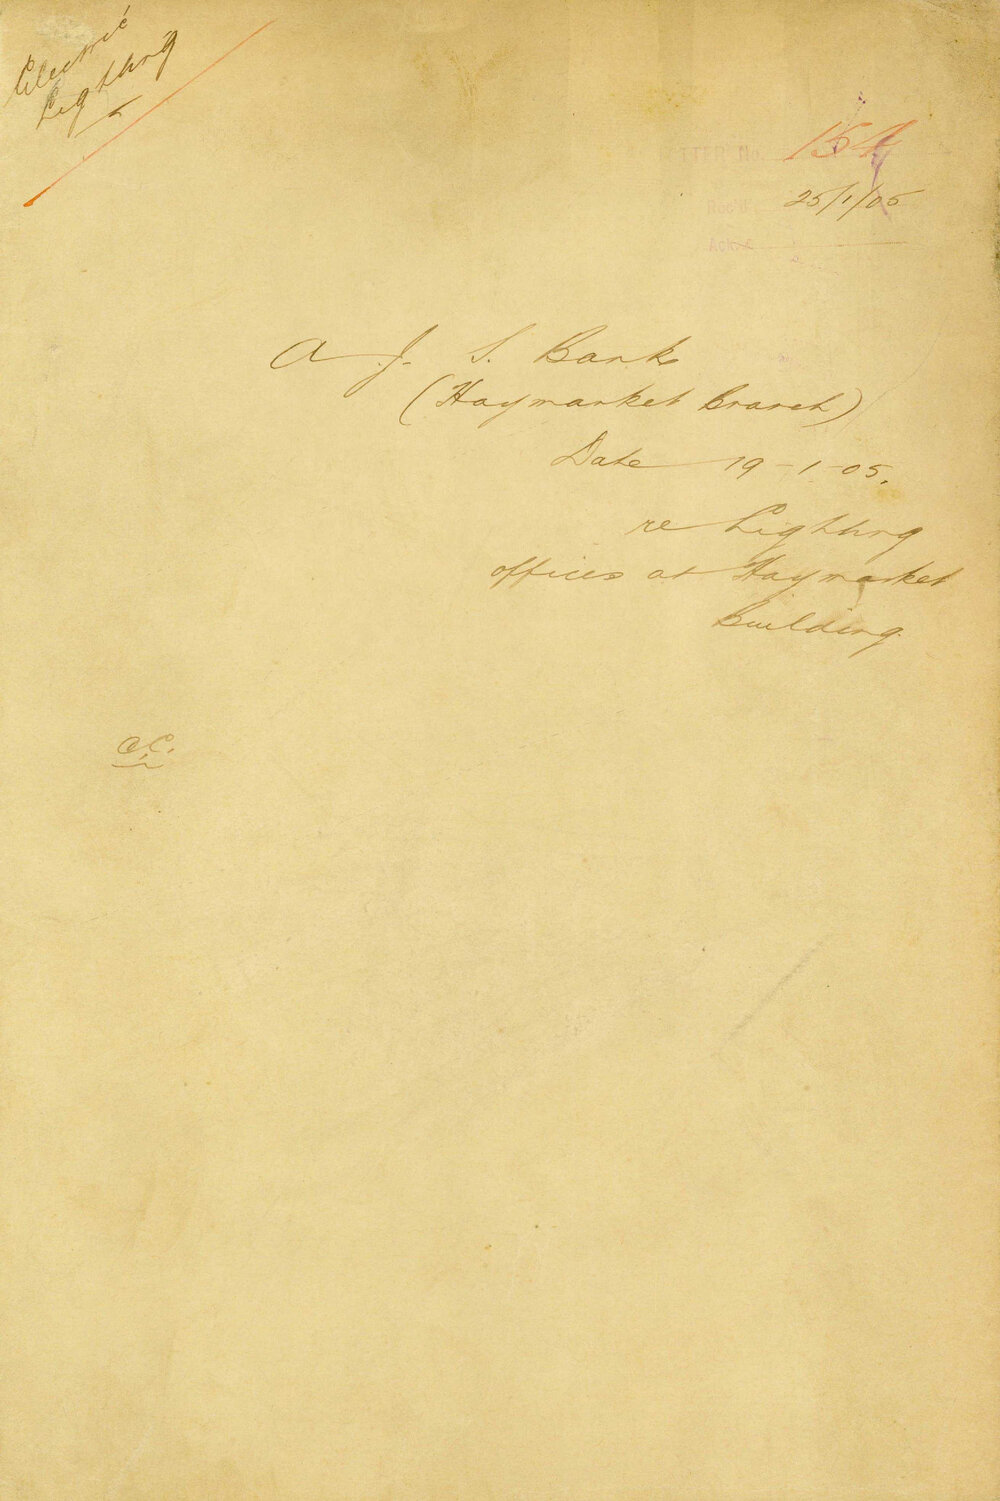 Electric
Lighting
LETTER No. 154
Rec'd 25/1/05
Ack'd
A J. S. Bank
(Haymarket Branch)
Date 19-1-05.
re Lighting
offices at Haymarket
Building.
C.C.